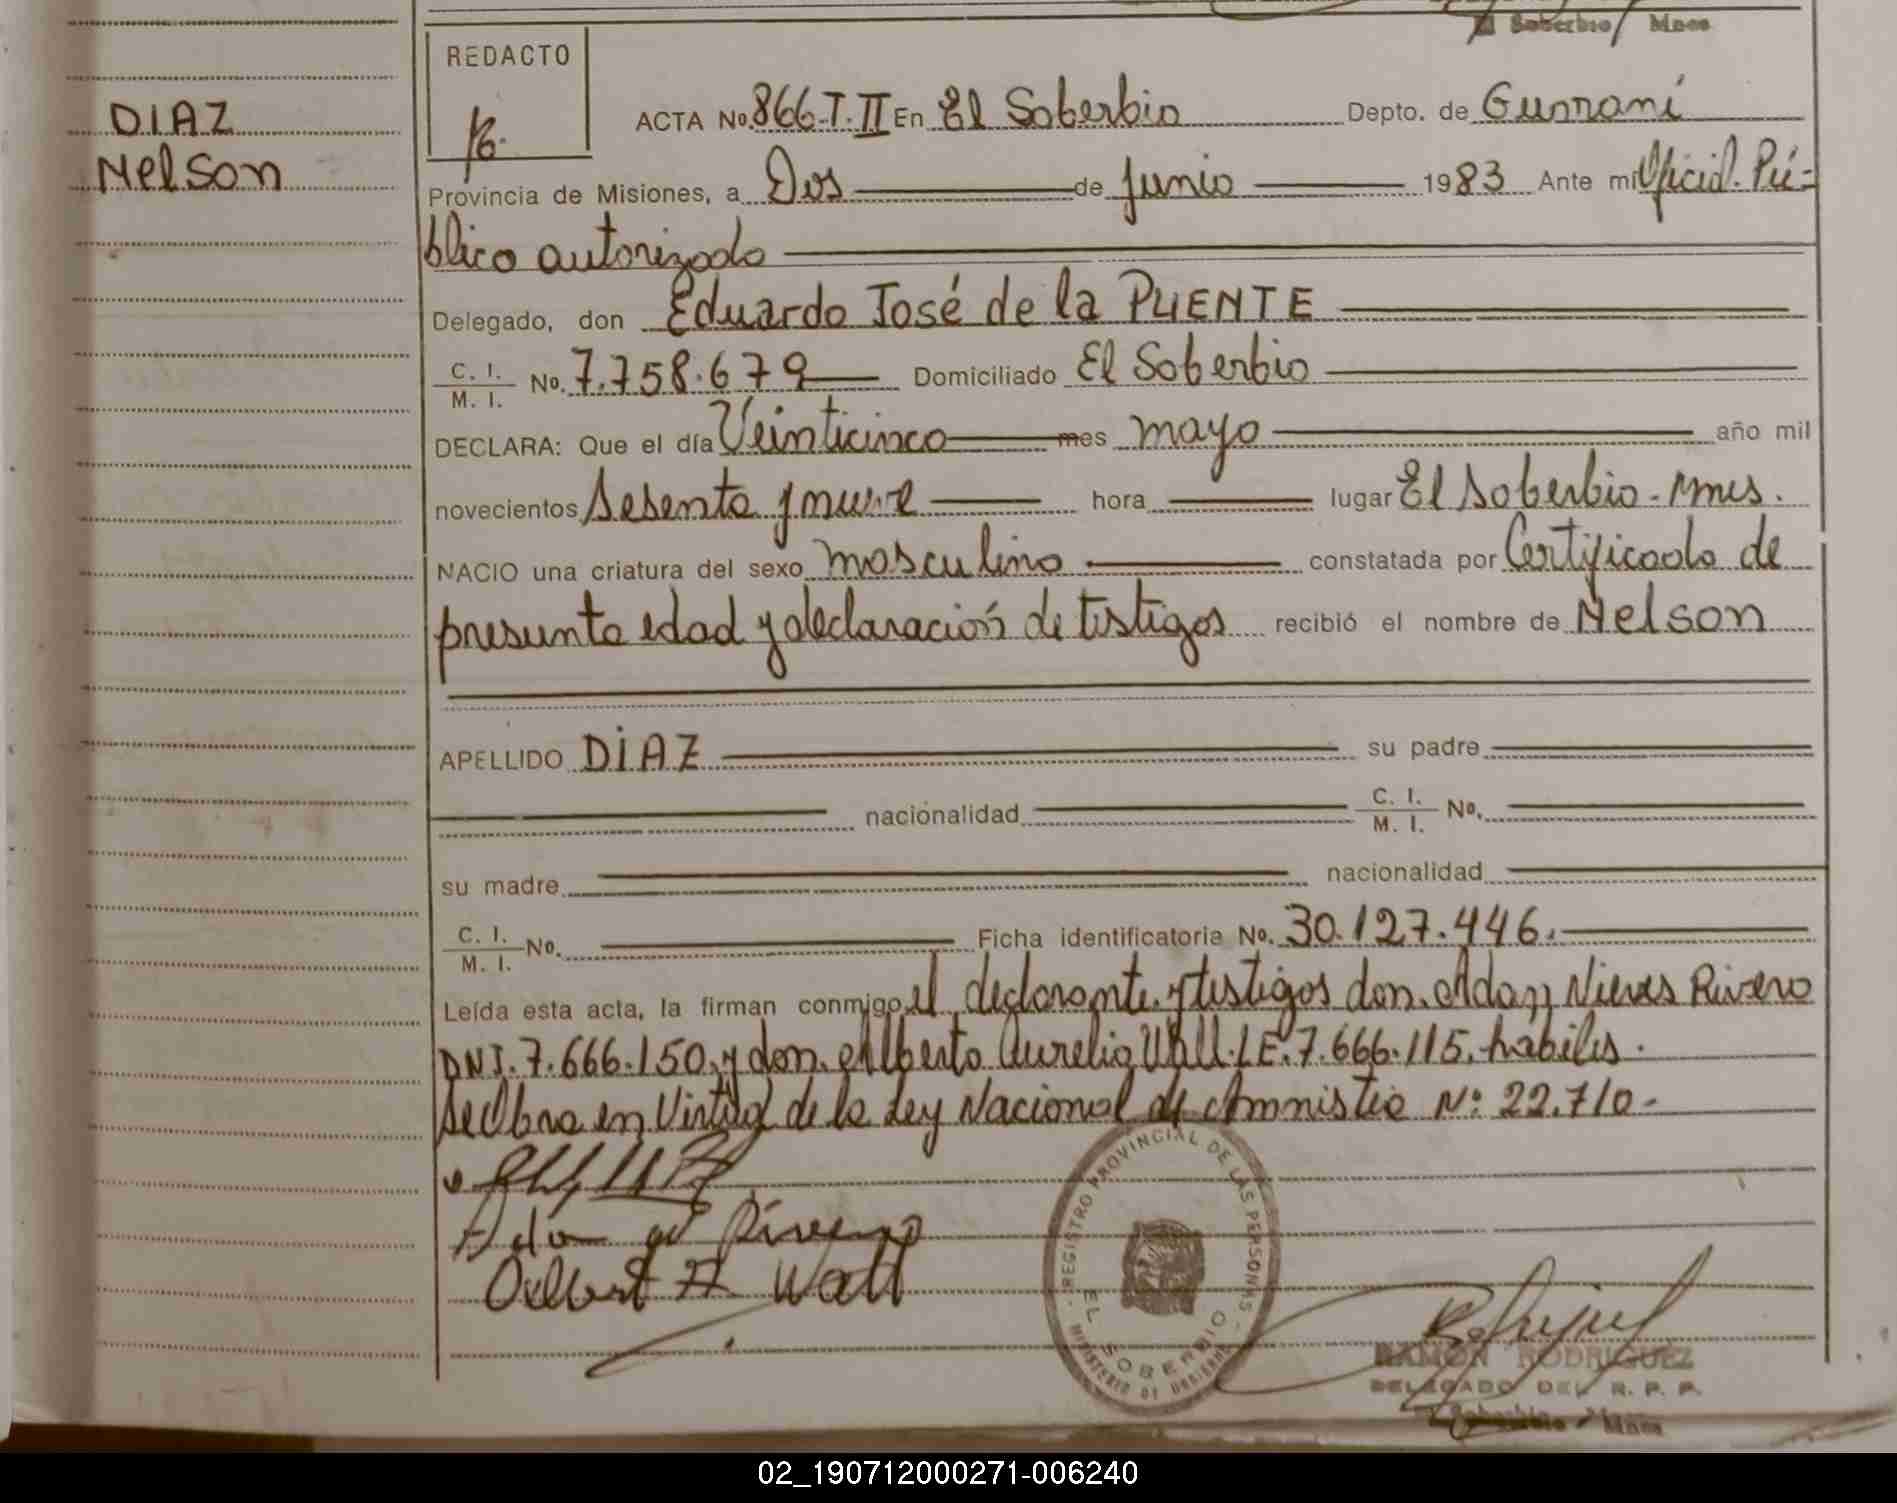 El Soberbio Mnes
REDACTO
DIAZ
Nelson
ACTA No. 866-T. II En El Soberbio Depto. de Guaraní
Provincia de Misiones, a Dos de junio 1983 Ante mi Oficial Pú-
blico autorizado
Delegado, don Eduardo José de la PUENTE
C. I. / M. I. No. 7.758.679 Domiciliado El Soberbio
DECLARA: Que el día Veinticinco mes mayo año mil
novecientos Sesenta y nueve hora lugar El Soberbio - Mnes.
NACIO una criatura del sexo masculino constatada por Certificado de
presunta edad y declaración de testigos recibió el nombre de Nelson
APELLIDO DIAZ su padre
nacionalidad C. I. / M. I. No.
su madre nacionalidad
C. I. / M. I. No. Ficha identificatoria No. 30.127.446.
Leída esta acta, la firman conmigo el declarante y testigos don Adan Nieves Rivero
DNI. 7.666.150 y don Alberto Aurelio Wall. LE. 7.666.115. habiles.
Se labra en Virtud de la Ley Nacional de Amnistia Nº 22.710-
REGISTRO PROVINCIAL DE LAS PERSONAS
EL SOBERBIO
MINISTERIO DE GOBIERNO
RAMON RODRIGUEZ
DELEGADO DEL R. P. P.
El Soberbio - Mnes
02_190712000271-006240